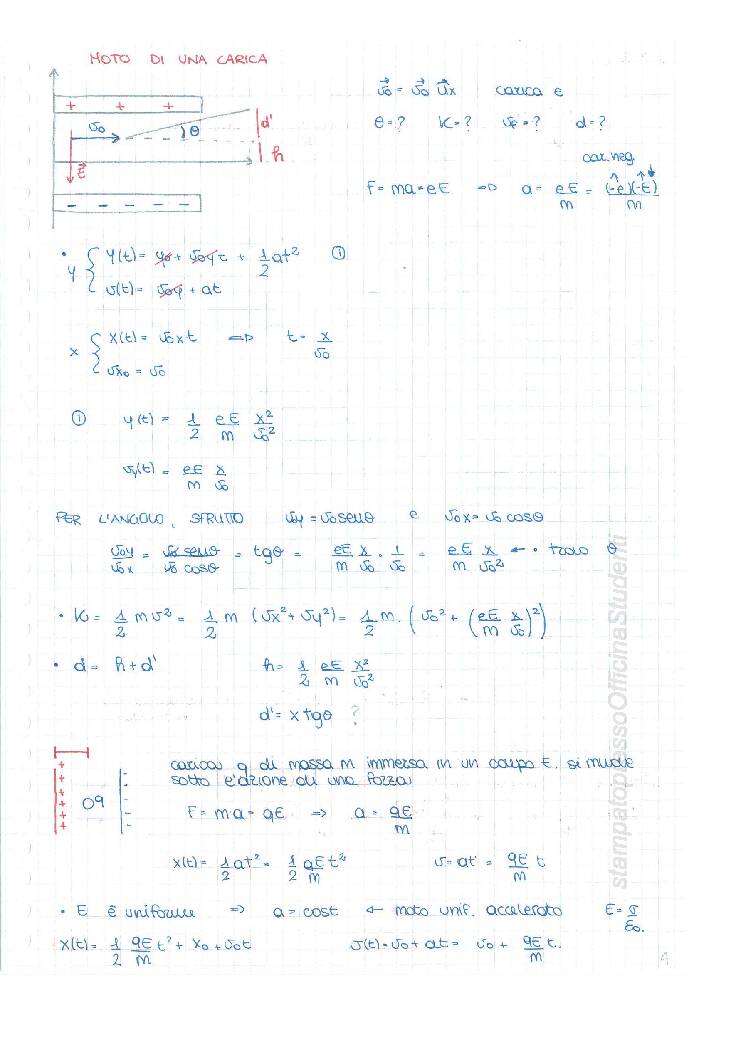 MOTO DI UNA CARICA
+ + +
v0
θ
d'
h
E
- - - - -
v⃗0 = v⃗0 u⃗x carica e
θ=? K=? vf=? d=?
car. neg
F=ma=eE => a = eE/m = (-e)(-E)/m
• y { y(t) = y0 + v0y t + 1/2 at² ①
v(t) = v0y + at
x { x(t) = v0x t => t = x/v0
vx0 = v0
① y(t) = 1/2 eE/m x²/v0²
vy(t) = eE/m x/v0
PER L'ANGOLO, SFRUTTO v0y = v0 senθ e v0x = v0 cosθ
v0y/v0x = v0 senθ/v0 cosθ = tgθ = eE/m x/v0 · 1/v0 = eE/m x/v0² ← • trovo θ
• K = 1/2 mv² = 1/2 m (vx² + vy²) = 1/2 m · (v0² + (eE/m x/v0)²)
• d = h+d' h = 1/2 eE/m x²/v0²
d' = x tgθ ?
+ + + + + +
oq
carica q di massa m immersa in un campo E. si muove
sotto l'azione di una forza
F = ma = qE => a = qE/m
x(t) = 1/2 at² = 1/2 qE/m t² v = at = qE/m t
• E è uniforme => a = cost ← moto unif. accelerato E = σ/ε0.
x(t) = 1/2 qE/m t² + x0 + v0t v(t) = v0 + at = v0 + qE/m t.
4
stampatopressoOfficinaStudenti